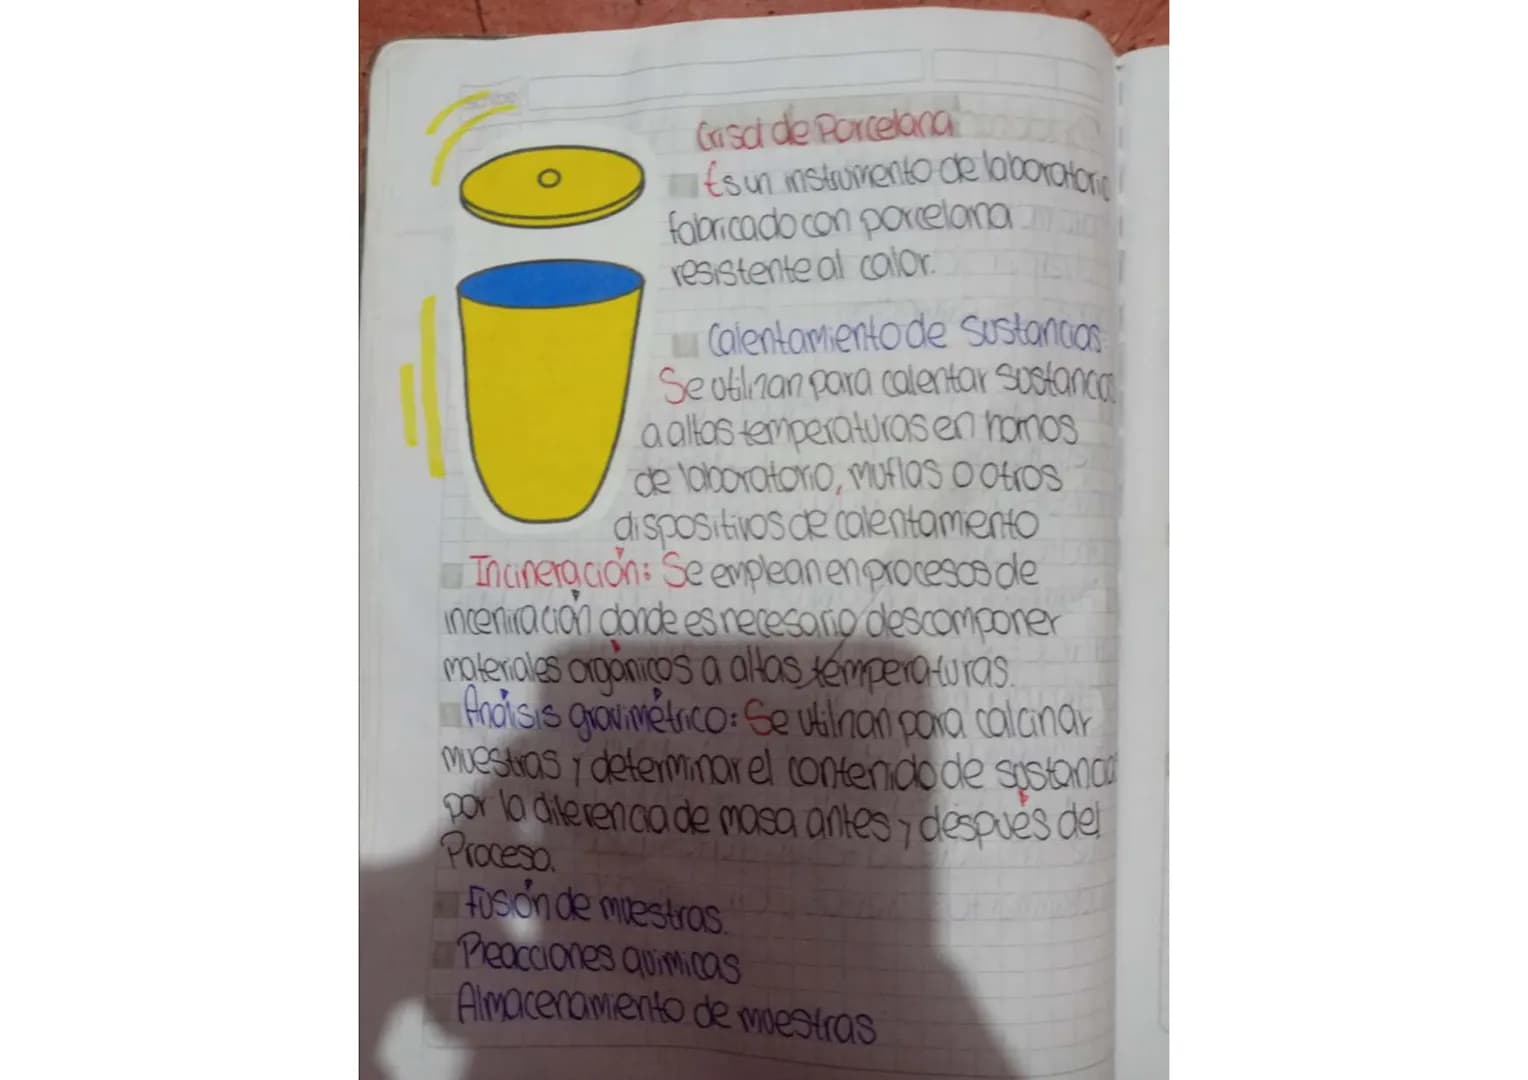 Scribe
Crisol de Porcelana
Es un instrumento de laboratorio
fabricado con porcelana
resistente al calor.
Calentamiento de Sustancias
Se utilizan para calentar sustancias
a altas temperaturas en hornos
de laboratorio, muflas o otros
dispositivos de calentamento
Incineración: Se emplean en procesos de
inceniración donde es necesario descomponer
materiales orgánicos a altas temperaturas.
Análisis gravimétrico: Se utilizan para calcinar
muestras y determinar el contenido de sustancia
por la diferencia de masa antes y después del
Proceso.
Fusión de muestras.
Reacciones quimicas
Almacenamiento de muestras